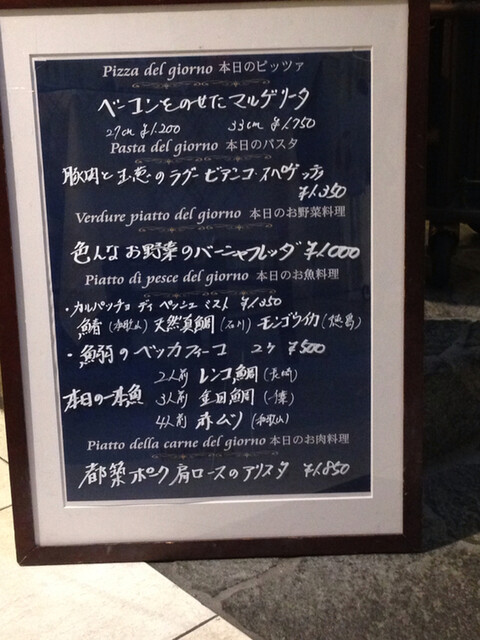 Pizza del giorno 本日のピッツァ
ベーコンをのせたマルゲリータ
27cm ¥1.200 33cm ¥1.750
Pasta del giorno 本日のパスタ
豚肉と玉葱のラグー ビアンコ スパゲッティ
¥1.350
Verdure piatto del giorno 本日のお野菜料理
色んなお野菜のバーニャフレッダ ¥1.000
Piatto di pesce del giorno 本日のお魚料理
・カルパッチョ ディ ペッシェ ミスト ¥1.350
鯖(和歌山) 天然真鯛(石川) モンゴウイカ(徳島)
・鰯のベッカフィーコ 2ケ ¥500
2人前 レンコ鯛(長崎)
本日の一本魚 3人前 金目鯛
4人前 赤ムツ(和歌山)
Piatto della carne del giorno 本日のお肉料理
都築ポーク肩ロースのアリスタ ¥1.850